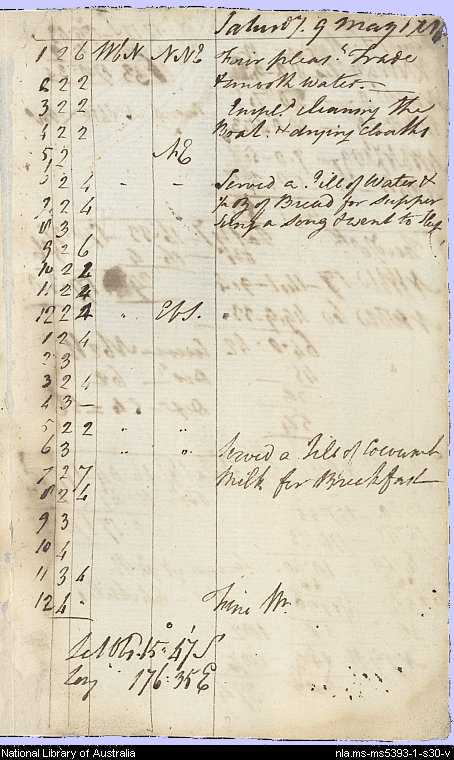 Saturdy. 9 May 1789
1 2 6 WbN NNE Fair pleast. Trade
2 2 2 & smooth water.
3 2 2 Empld. cleaning the
4 2 2 Boat. & drying Cloaths
5 2 NE
6 2 4 " " Served a Jill of Water &
7 2 4 ½ oz of Bread for supper
8 3 Sung a Song & went to sleep
9 2 6
10 2 2
11 2 4
12 2 4 " EbS. "
1 2 4
2 3
3 2 4
4 3 -
5 2 2 " "
6 3 " " Served a Jill of Cocoanut
7 2 7 Milk for Breakfast
8 2 4
9 3
10 4
11 3 4
12 4 " Fine Wr.
Lat Obd. 15° 47' S
Long 176:35 E
National Library of Australia nla.ms-ms5393-1-s30-v